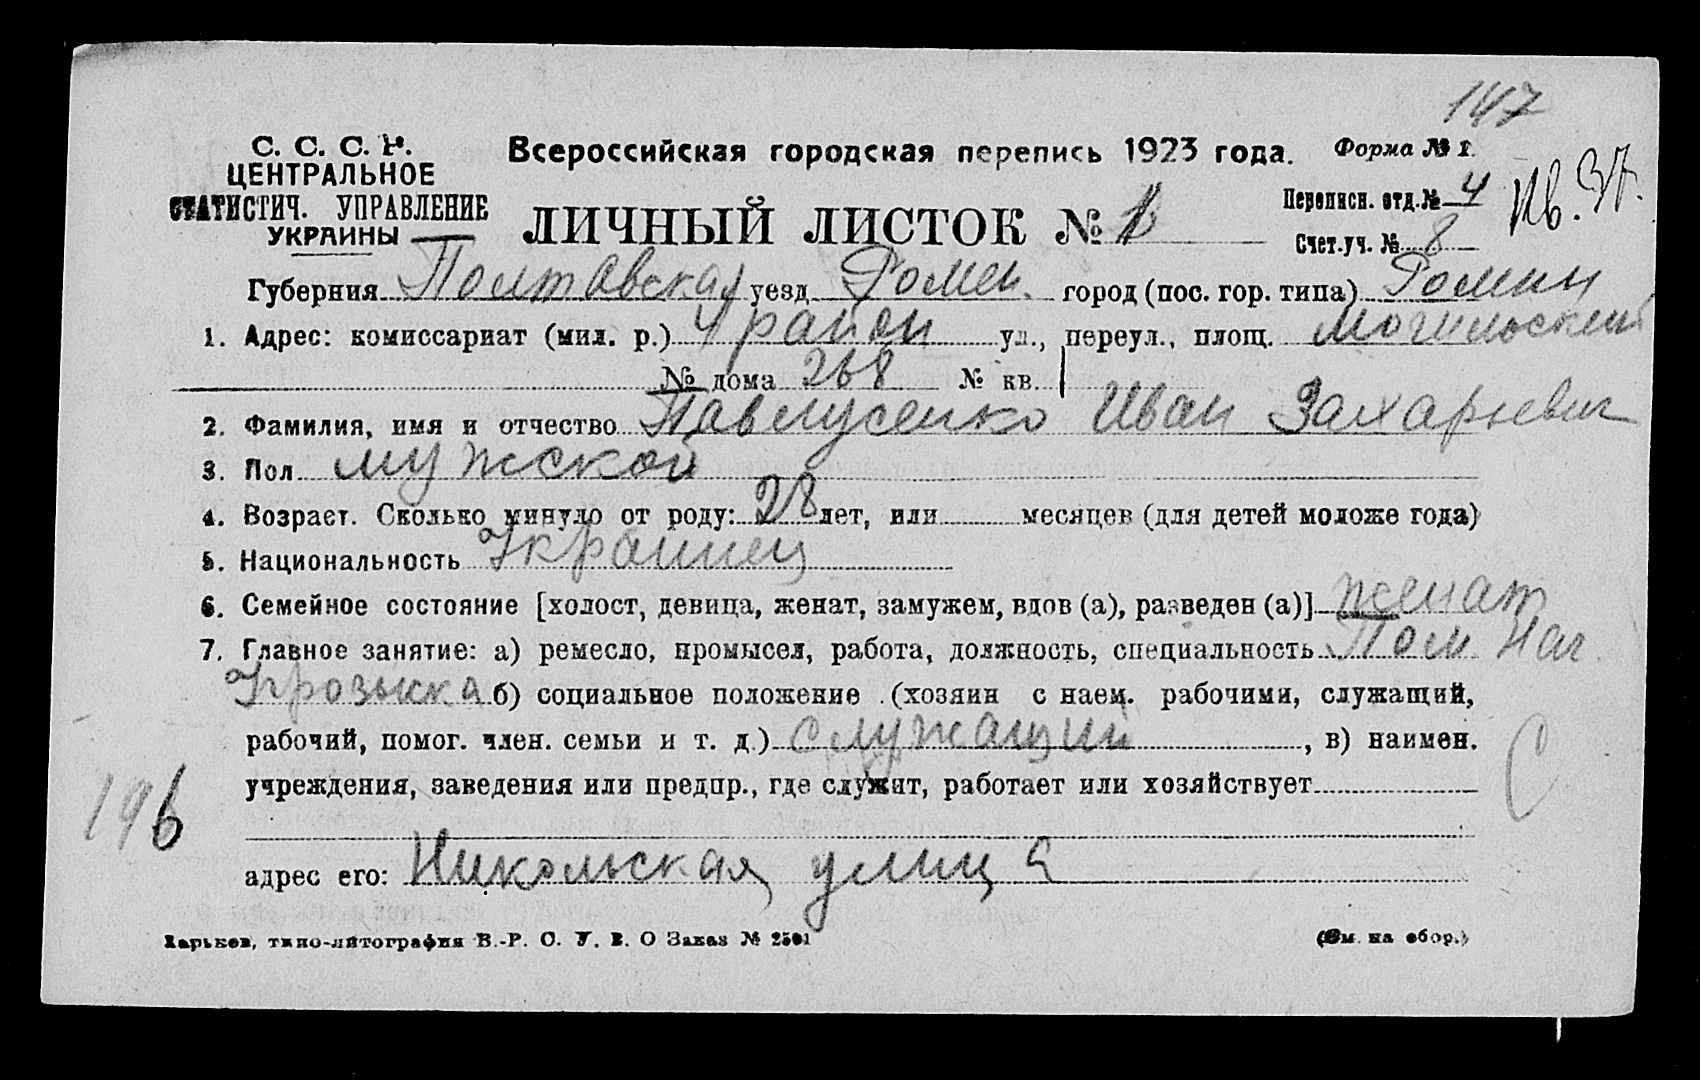 147
С. С. С. Р. Всероссийская городская перепись 1923 года. Форма № 1.
ЦЕНТРАЛЬНОЕ
СТАТИСТИЧ. УПРАВЛЕНИЕ
УКРАИНЫ
Переписн. отд. № 4
ЛИЧНЫЙ ЛИСТОК №
Счет.уч. № 8
Губерния Полтавская уезд Ромен. город (пос. гор. типа) Ромны
1. Адрес: комиссариат (мил. р.) 4 район ул., переул., площ.
№ дома 268 № кв.
2. Фамилия, имя и отчество Павлусенко Иван Захарьевич
3. Пол мужской
4. Возраст. Сколько минуло от роду: 28 лет, или месяцев (для детей моложе года)
5. Национальность Украинец
6. Семейное состояние [холост, девица, женат, замужем, вдов (а), разведен (а)] женат
7. Главное занятие: а) ремесло, промысел, работа, должность, специальность Пом Нач
розыска б) социальное положение (хозяин с наем. рабочими, служащий,
рабочий, помог. член. семьи и т. д.) служащий, в) наимен.
учреждения, заведения или предпр., где служит, работает или хозяйствует
196
адрес его: Никольская улица
Харьков, типо-литография В.-Р. С. У. В. О Заказ № 2501 (См. на обор.)